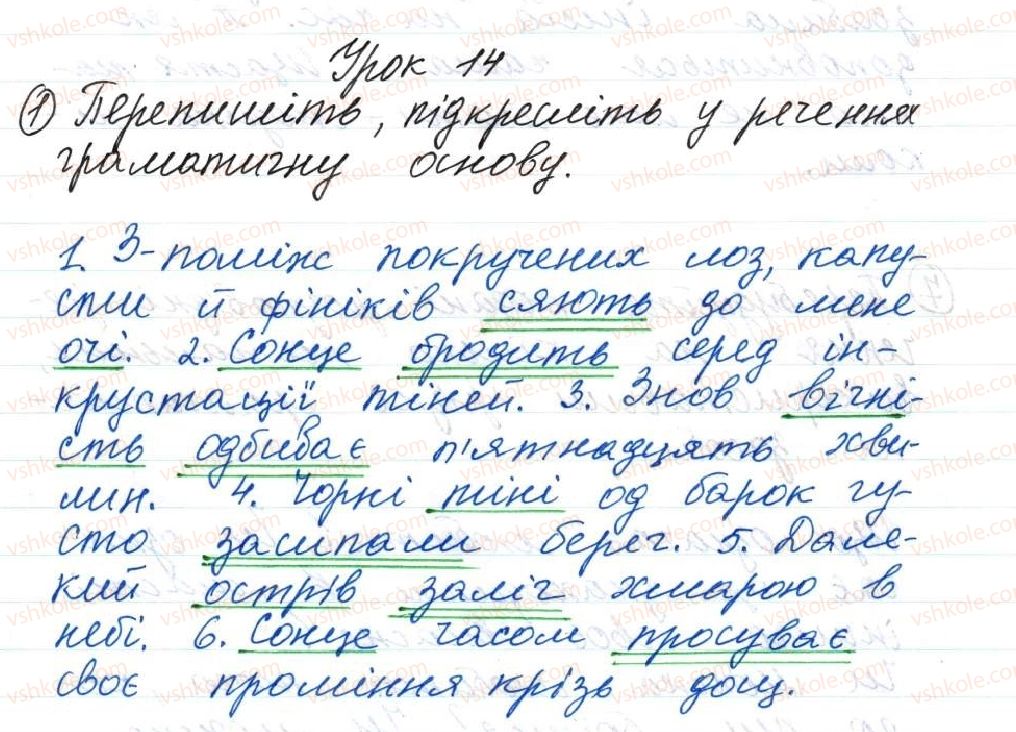 Урок 14
① Перепишіть, підкресліть у реченнях
граматичну основу.
1. З-поміж покручених лоз, капу-
сти й фініків сяють до мене
очі. 2. Сонце бродить серед ін-
крустації тіней. 3. Знов вічні-
сть одбиває п'ятнадцять хви-
лин. 4. Чорні тіні од барок гу-
сто засипали берег. 5. Дале-
кий острів заліг хмарою в
небі. 6. Сонце часом просуває
своє проміння крізь дощ.